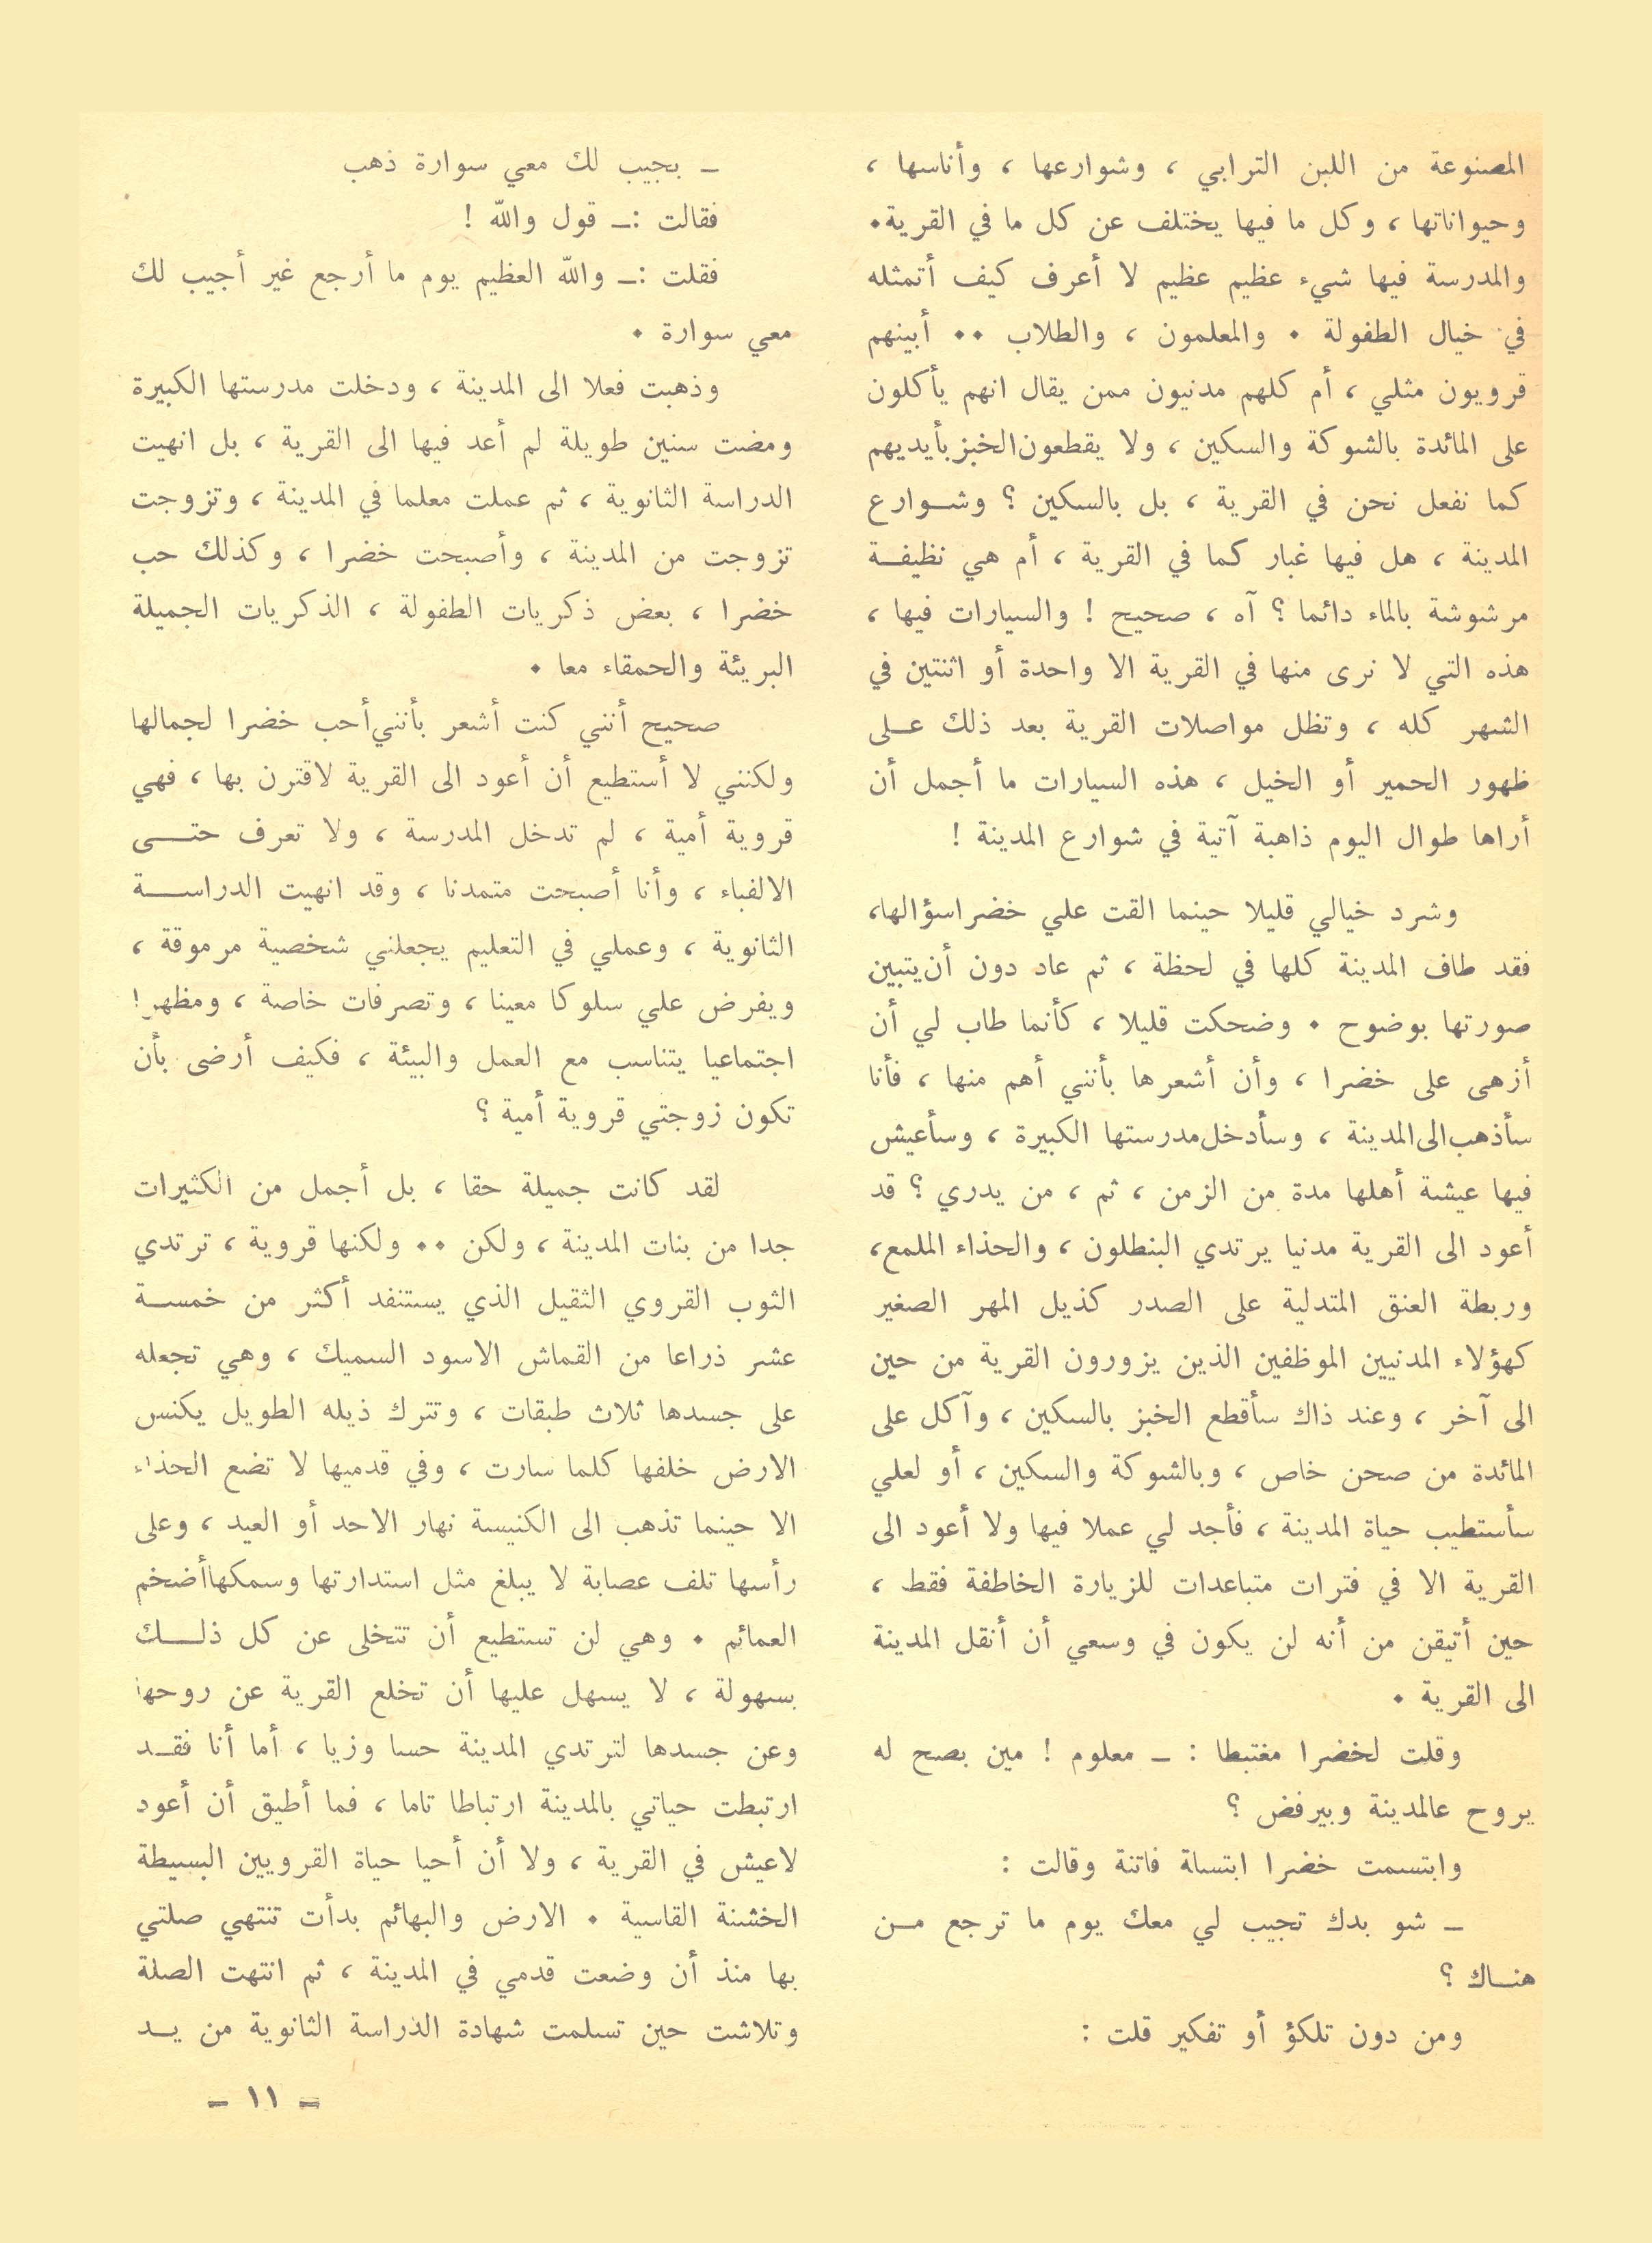 المصنوعة من اللبن الترابي ، وشوارعها ، وأناسها ،
وحيواناتها ، وكل ما فيها يختلف عن كل ما في القرية.
والمدرسة فيها شيء عظيم عظيم لا أعرف كيف أتمثله
في خيال الطفولة . والمعلمون ، والطلاب .. أبينهم
قرويون مثلي ، أم كلهم مدنيون ممن يقال انهم يأكلون
على المائدة بالشوكة والسكين ، ولا يقطعون الخبز بأيديهم
كما نفعل نحن في القرية ، بل بالسكين ؟ وشوارع
المدينة ، هل فيها غبار كما في القرية ، أم هي نظيفة
مرشوشة بالماء دائما ؟ آه ، صحيح ! والسيارات فيها ،
هذه التي لا نرى منها في القرية الا واحدة أو اثنتين في
الشهر كله ، وتظل مواصلات القرية بعد ذلك على
ظهور الحمير أو الخيل ، هذه السيارات ما أجمل أن
أراها طوال اليوم ذاهبة آتية في شوارع المدينة !
وشرد خيالي قليلا حينما القت علي خضرا سؤالها،
فقد طاف المدينة كلها في لحظة ، ثم عاد دون أن يتبين
صورتها بوضوح . وضحكت قليلا ، كأنما طاب لي أن
أزهى على خضرا ، وأن أشعرها بأنني أهم منها ، فأنا
سأذهب الى المدينة ، وسأدخل مدرستها الكبيرة ، وسأعيش
فيها عيشة أهلها مدة من الزمن ، ثم ، من يدري ؟ قد
أعود الى القرية مدنيا يرتدي البنطلون ، والحذاء الملمع،
وربطة العنق المتدلية على الصدر كذيل المهر الصغير
كهؤلاء المدنيين الموظفين الذين يزورون القرية من حين
الى آخر ، وعند ذاك سأقطع الخبز بالسكين ، وآكل على
المائدة من صحن خاص ، وبالشوكة والسكين ، أو لعلي
سأستطيب حياة المدينة ، فأجد لي عملا فيها ولا أعود الى
القرية الا في فترات متباعدات للزيارة الخاطفة فقط ،
حين أتيقن من أنه لن يكون في وسعي أن أنقل المدينة
الى القرية .
وقلت لخضرا مغتبطا : ـ معلوم ! مين بصح له
يروح عالمدينة وبيرفض ؟
وابتسمت خضرا ابتسلة فاتنة وقالت :
ـ شو بدك تجيب لي معك يوم ما ترجع من
هناك ؟
ومن دون تلكؤ أو تفكير قلت :
ـ بجيب لك معي سوارة ذهب
فقالت :ـ قول والله !
فقلت :ـ والله العظيم يوم ما أرجع غير أجيب لك
معي سوارة .
وذهبت فعلا الى المدينة ، ودخلت مدرستها الكبيرة
ومضت سنين طويلة لم أعد فيها الى القرية ، بل انهيت
الدراسة الثانوية ، ثم عملت معلما في المدينة ، وتزوجت
تزوجت من المدينة ، وأصبحت خضرا ، وكذلك حب
خضرا ، بعض ذكريات الطفولة ، الذكريات الجميلة
البريئة والحمقاء معا .
صحيح أنني كنت أشعر بأنني أحب خضرا لجمالها
ولكنني لا أستطيع أن أعود الى القرية لاقترن بها ، فهي
قروية أمية ، لم تدخل المدرسة ، ولا تعرف حتى
الالفباء ، وأنا أصبحت متمدنا ، وقد انهيت الدراسة
الثانوية ، وعملي في التعليم يجعلني شخصية مرموقة ،
ويفرض علي سلوكا معينا ، وتصرفات خاصة ، ومظهرا
اجتماعيا يتناسب مع العمل والبيئة ، فكيف أرضى بأن
تكون زوجتي قروية أمية ؟
لقد كانت جميلة حقا ، بل أجمل من الكثيرات
جدا من بنات المدينة ، ولكن .. ولكنها قروية ، ترتدي
الثوب القروي الثقيل الذي يستنفد أكثر من خمسة
عشر ذراعا من القماش الاسود السميك ، وهي تجعله
على جسدها ثلاث طبقات ، وتترك ذيله الطويل يكنس
الارض خلفها كلما سارت ، وفي قدميها لا تضع الحذاء
الا حينما تذهب الى الكنيسة نهار الاحد أو العيد ، وعلى
رأسها تلف عصابة لا يبلغ مثل استدارتها وسمكها أضخم
العمائم . وهي لن تستطيع أن تتخلى عن كل ذلك
بسهولة ، لا يسهل عليها أن تخلع القرية عن روحها
وعن جسدها لترتدي المدينة حسا وزيا ، أما أنا فقد
ارتبطت حياتي بالمدينة ارتباطا تاما ، فما أطيق أن أعود
لاعيش في القرية ، ولا أن أحيا حياة القرويين البسيطة
الخشنة القاسية . الارض والبهائم بدأت تنتهي صلتي
بها منذ أن وضعت قدمي في المدينة ، ثم انتهت الصلة
وتلاشت حين تسلمت شهادة الدراسة الثانوية من يد
ـ ١١ ـ